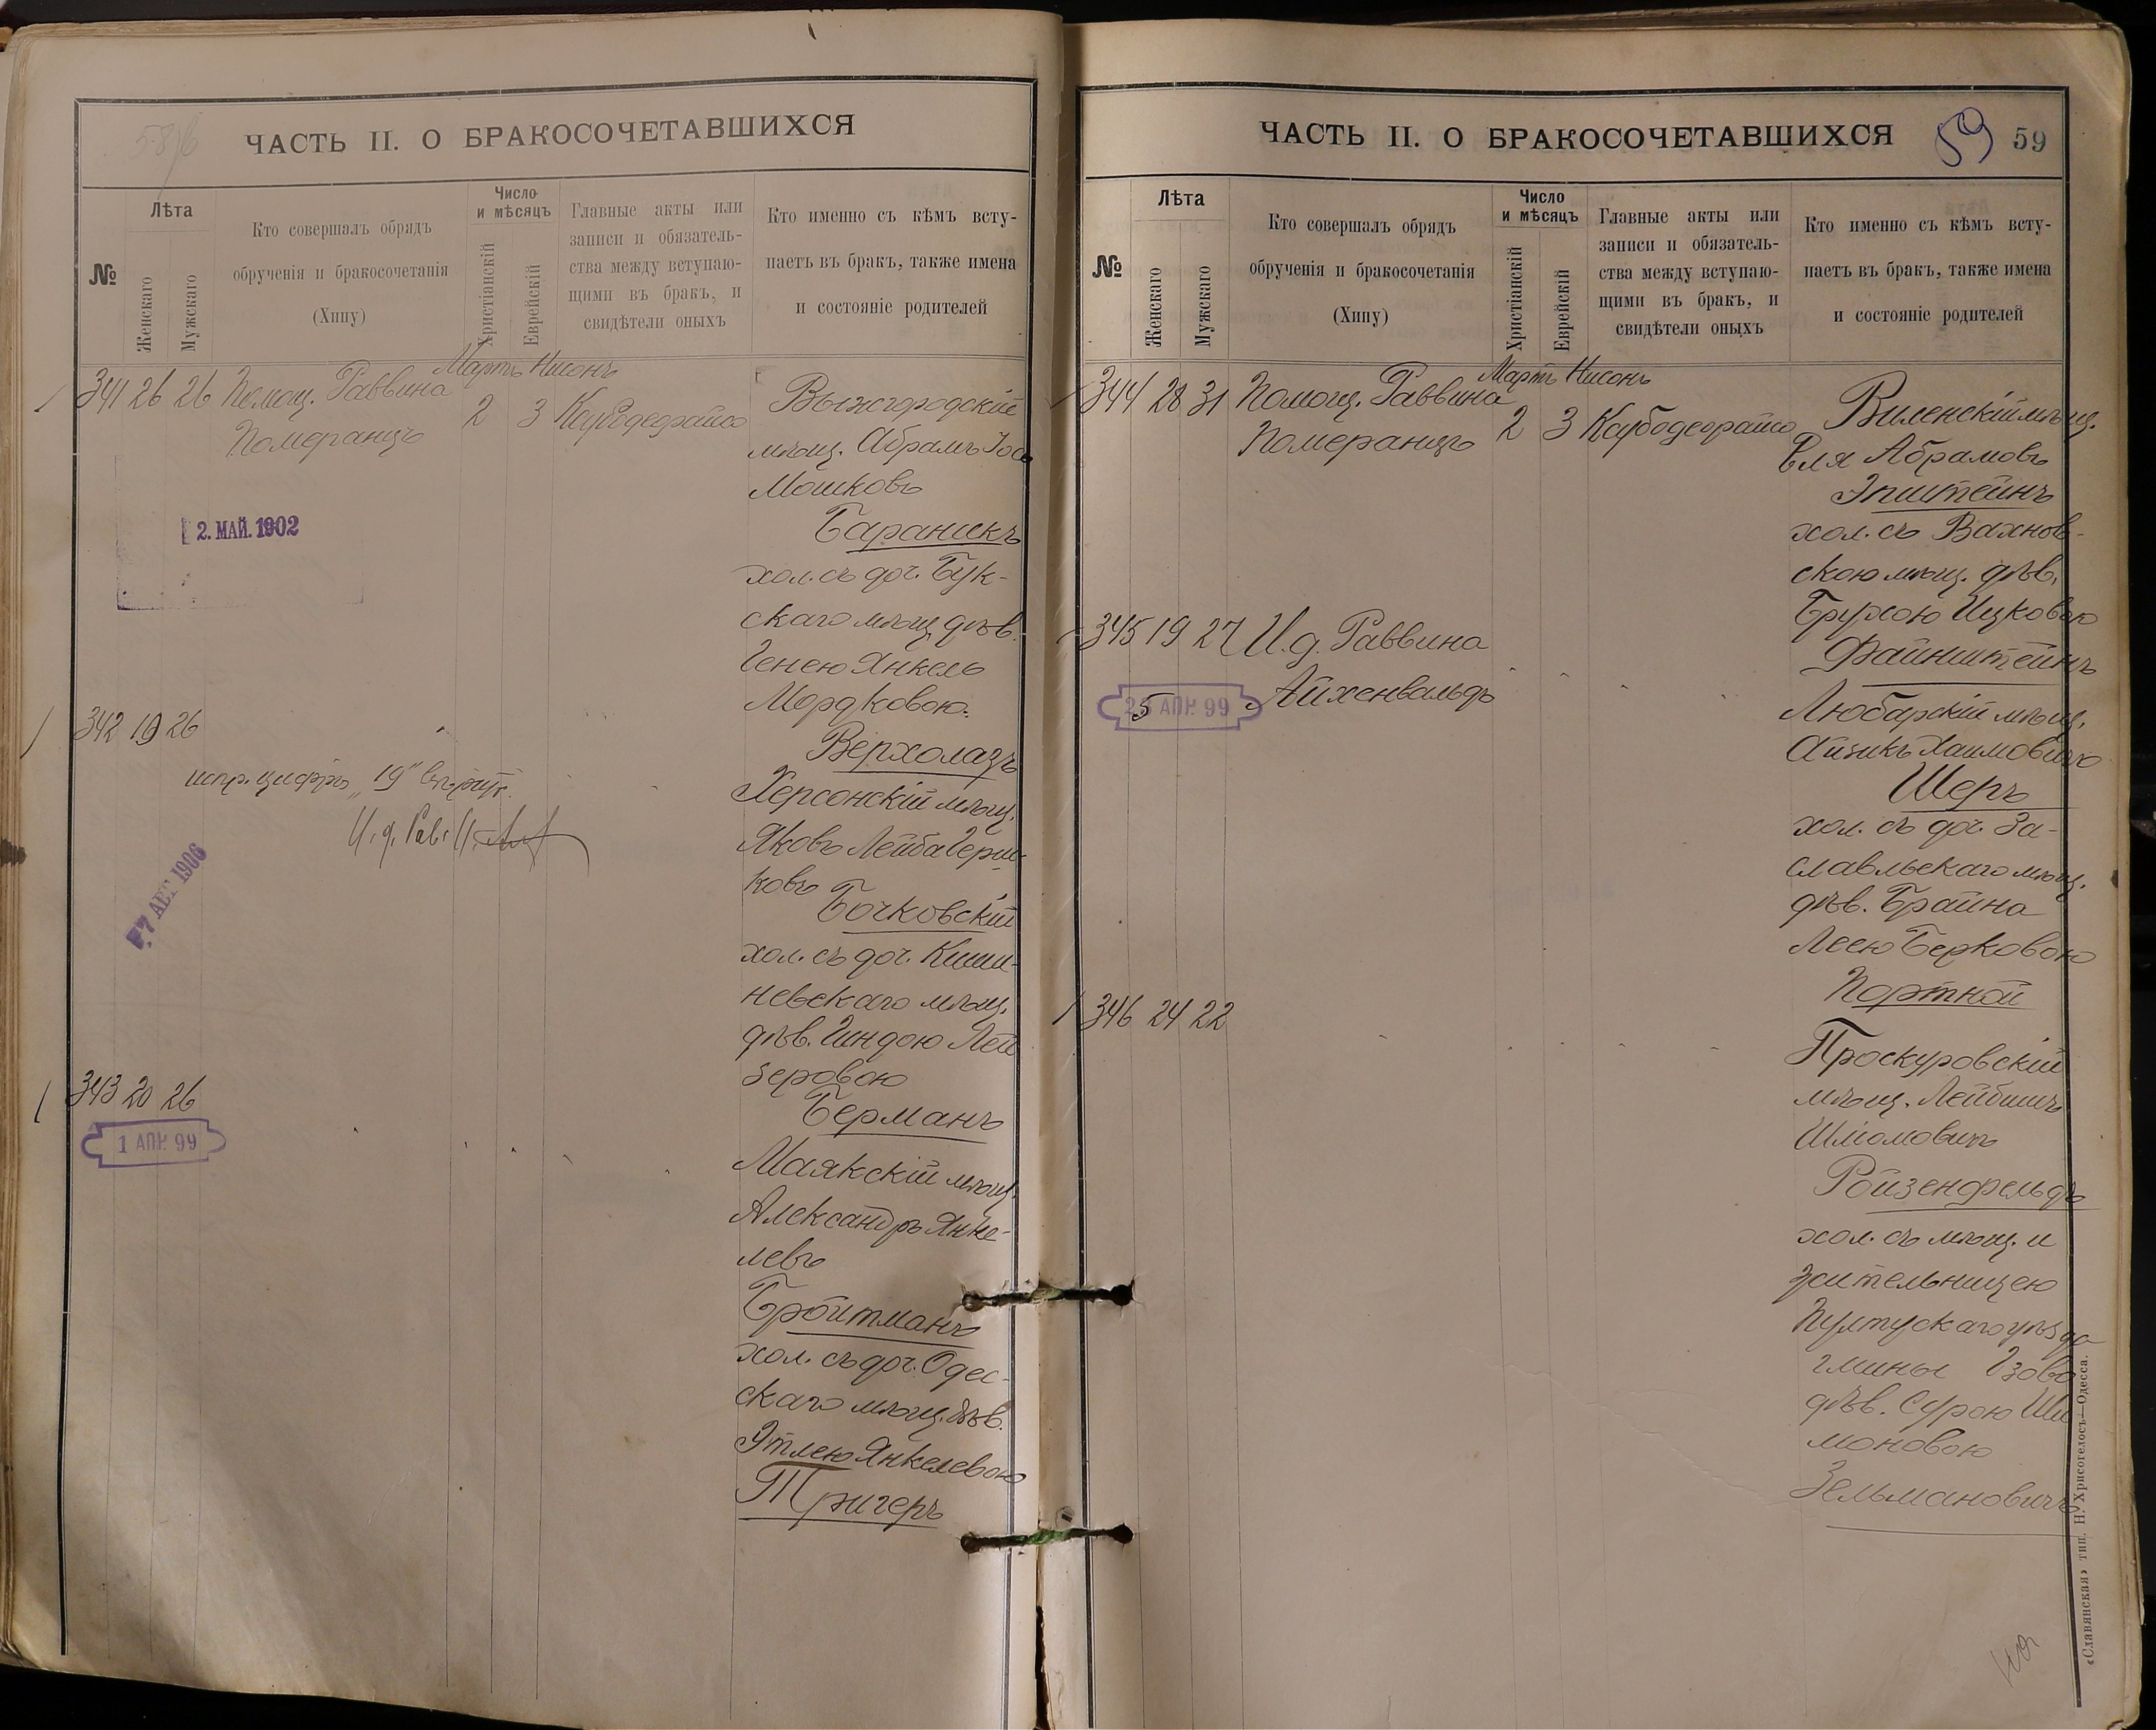 58/б
ЧАСТЬ II. О БРАКОСОЧЕТАВШИХСЯ
№
Лѣта
Женскаго
Мужскаго
Кто совершалъ обрядъ
обрученія и бракосочетанія
(Хипу)
Число
и мѣсяцъ
Христіанскій
Еврейскій
Главные акты или
записи и обязатель-
ства между вступаю-
щими въ бракъ, и
свидѣтели оныхъ
Кто именно съ кѣмъ всту-
паетъ въ бракъ, также имена
и состояніе родителей
Мартъ Нисонъ
341 26 26 Помощ. Раввина
Померанцъ
2 3 Каубодеорайсо
Вышгородскій
мѣщ. Абрамъ Іось
Мошковъ
Бараникъ
хол. съ доч. Бук-
скаго мѣщ дѣв.
Генею Янкель
Мордковою
Верхолазъ
2. МАЙ. 1902
342 19 26
испр. цифръ „19"
И. д. Рав.
7 АВГ 1906
Херсонскій мѣщ.
Яковъ Лейба Герш-
ковъ
Бочковскій
хол. съ доч. Киши-
невскаго мѣщ.
дѣв. Гиндою Лей
зеровою
Берманъ
343 20 26
1 АПР. 99
Маякскій мѣщ.
Александръ Янке-
левъ
Бройтманъ
хол. съ доч. Одес-
скаго мѣщ. дѣв.
Этлею Янкелевою
Тригеръ
ЧАСТЬ II. О БРАКОСОЧЕТАВШИХСЯ
59 59
№
Лѣта
Женскаго
Мужскаго
Кто совершалъ обрядъ
обрученія и бракосочетанія
(Хипу)
Число
и мѣсяцъ
Христіанскій
Еврейскій
Главные акты или
записи и обязатель-
ства между вступаю-
щими въ бракъ, и
свидѣтели оныхъ
Кто именно съ кѣмъ всту-
паетъ въ бракъ, также имена
и состояніе родителей
Мартъ Нисонъ
344 28 31 Помощ. Раввина
Померанцъ
2 3 Каубодеорайсо
Виленскій мѣщ.
Еля Абрамовъ
Эпштейнъ
хол. съ Вахнов-
скою мѣщ. дѣв.
Брухою Ицковою
Файнштейнъ
345 19 27 И. д. Раввина
Айхенвальдъ
25 АПР. 99
Любарскій мѣщ.
Айзикъ Хаимовичъ
Шеръ
хол. съ доч. За-
славльскаго мѣщ.
дѣв. Брайна
Леею Берковою
Портной
346 24 22
Проскуровскій
мѣщ. Лейбишъ
Шліомовичъ
Ройзенфельдъ
хол. съ мѣщ. и
жительницею
Пултускаго уѣзда
гмины Гзово
дѣв. Сурою Ши
моновою
Зельмановичъ
«Славянская» тип. Н. Хрисогелосъ—Одесса.